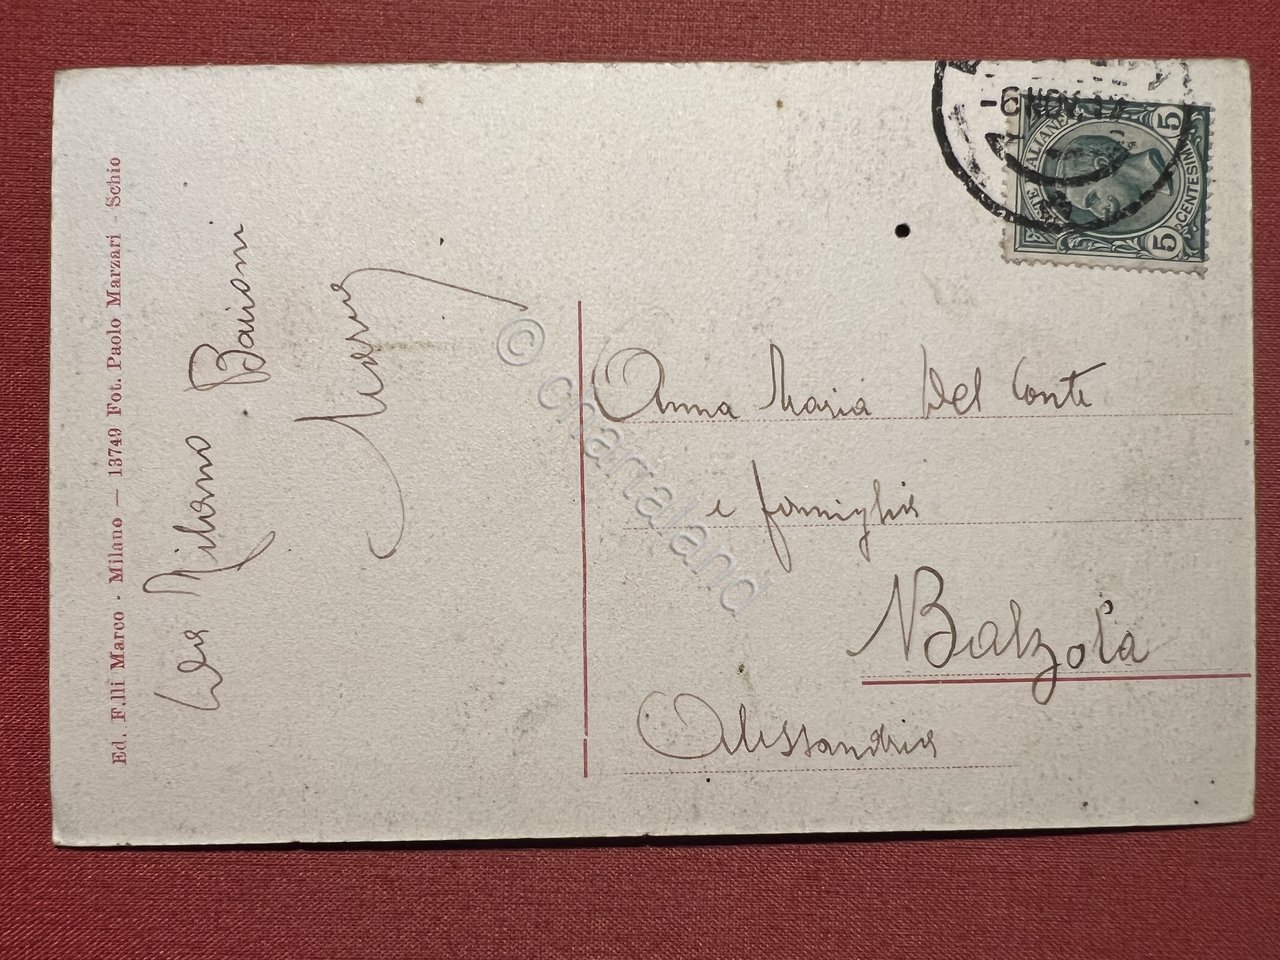 Ed. F.lli Marco - Milano — 13749 Fot. Paolo Marzari - Schio
Milano Baironi
-6 NOV. 17
POSTE ITALIANE
5
CENTESIMI
5
Anna Maria Del Conte
e famiglia
Balzola
Alessandria
© chartaland